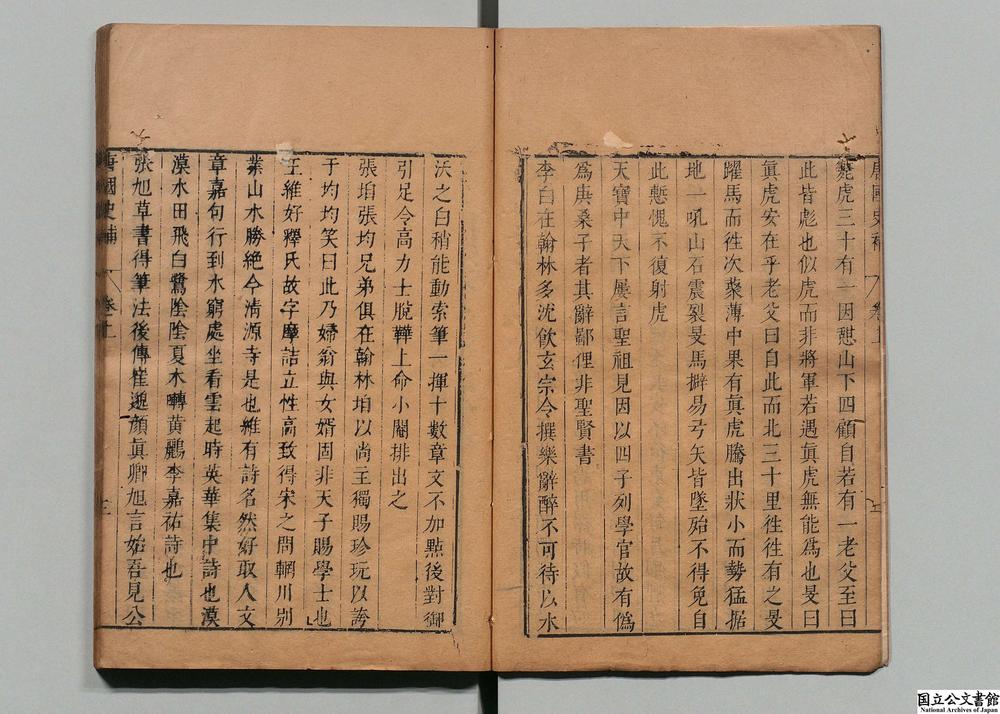 唐國史補 卷上
斃虎三十有一因憩山下四顧自若有一老父至曰
此皆彪也似虎而非將軍若遇眞虎無能爲也旻曰
眞虎安在乎老父曰自此而北三十里徃徃有之旻
躍馬而徃次藂薄中果有眞虎騰出狀小而勢猛据
地一吼山石震裂旻馬辟易弓矢皆墜殆不得免自
此慙愧不復射虎
天寶中天下屢言聖祖見因以四子列學官故有僞
爲庚桑子者其辭鄙俚非聖賢書
李白在翰林多沈飮玄宗令撰樂辭醉不可待以水
沃之白稍能動索筆一揮十數章文不加點後對御
引足令高力士脫鞾上命小閹排出之
張垍張均兄弟俱在翰林垍以尚主獨賜珍玩以誇
于均均笑曰此乃婦翁與女婿固非天子賜學士也
王維好釋氏故字摩詰立性高致得宋之問輞川別
業山水勝絶今淸源寺是也維有詩名然好取人文
章嘉句行到水窮處坐看雲起時英華集中詩也漠
漠水田飛白鷺陰陰夏木囀黃鸝李嘉祐詩也
張旭草書得筆法後傳崔邈顔眞卿旭言始吾見公
唐國史補 卷上
国立公文書館
National Archives of Japan